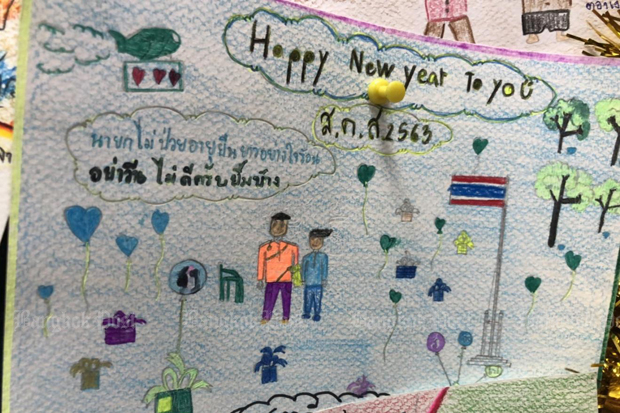 Happy New year To you
ส.ค.ส 2563
นายกไม่ป่วยอายุยืนยาวอย่าใจร้อน
อย่าวีน ไม่ดีครับยิ้มบ้าง